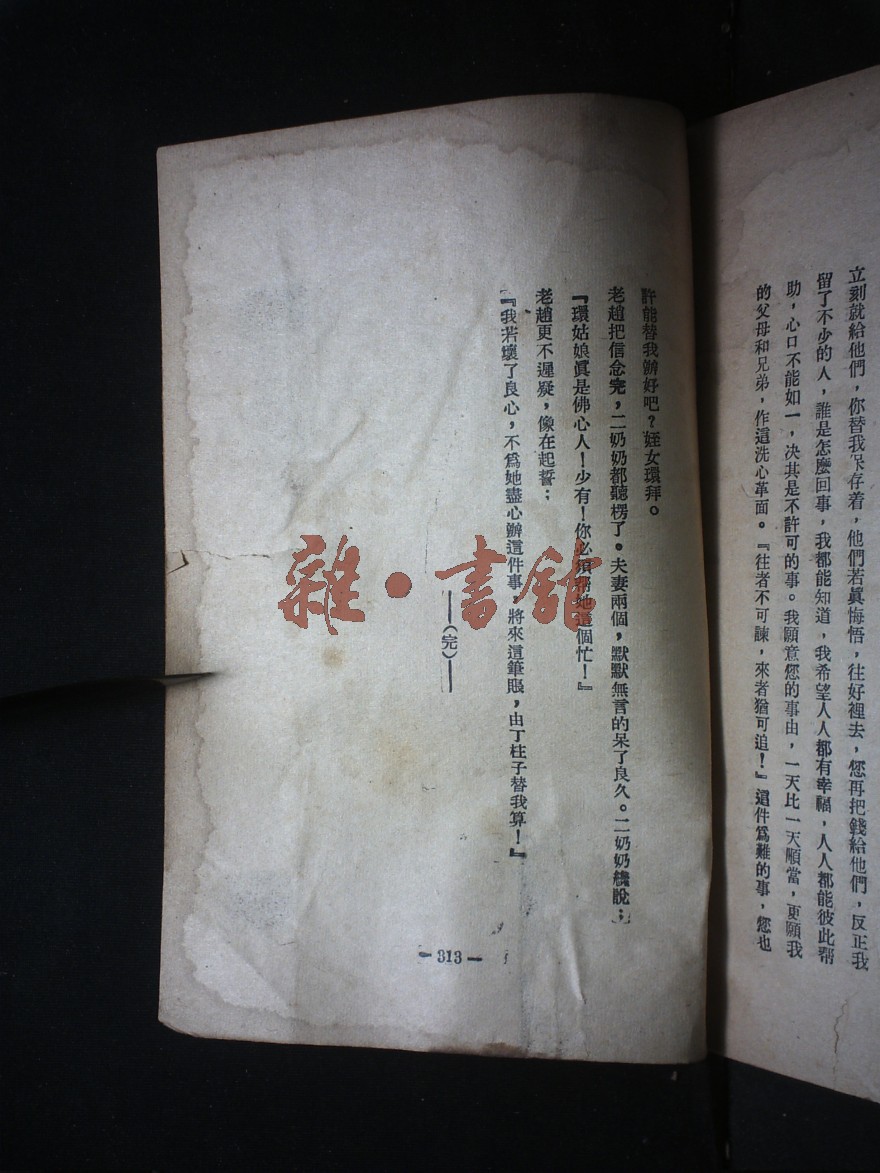 立刻就給他們，你替我保存着，他們若眞悔悟，往好裡去，您再把錢給他們，反正我
留了不少的人，誰是怎麼回事，我都能知道，我希望人人都有幸福，人人都能彼此幫
助，心口不能如一，决其是不許可的事。我願意您的事由，一天比一天順當，更願我
的父母和兄弟，作這洗心革面。『往者不可諫，來者猶可追！』這件爲難的事，您也
許能替我辦好吧？姪女環拜。
老趙把信念完，二奶奶都聽楞了。夫妻兩個，默默無言的呆了良久。二奶奶纔說：
『環姑娘眞是佛心人！少有！你必須幇她這個忙！』
老趙更不遲疑，像在起誓：
『我若壞了良心，不爲她盡心辦這件事，將來這筆賬，由丁柱子替我算！』
——（完）——
－313－
雜·書館